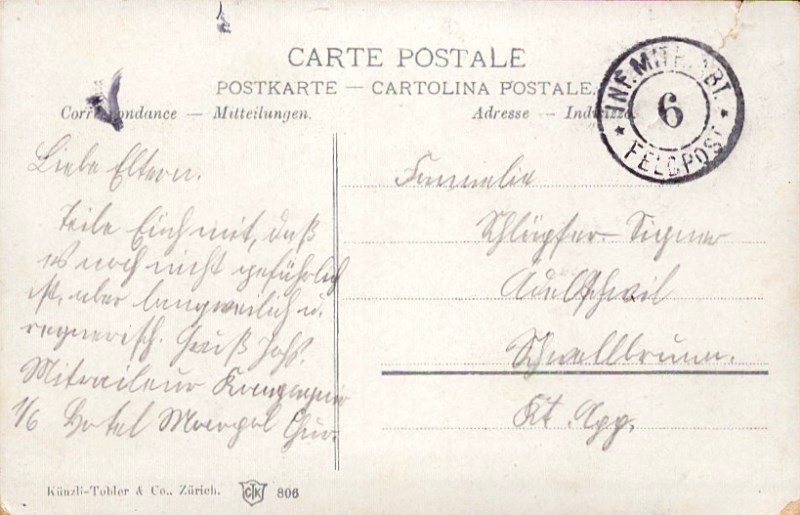 CARTE POSTALE
POSTKARTE — CARTOLINA POSTALE.
Correspondance — Mitteilungen.
Adresse — Indirizzo.
INF. MITR. ABT.
6
* FELDPOST *
Liebe Eltern.
Teile Euch mit, daß
es noch nicht gefährlich
ist, aber langweilich u.
regnerisch. Gruß Johs.
Mitraileur Kompagnie
1/6 Hotel Chur.
Familie
Schläpfer-Signer
Schwellbrunn.
Kt. App.
Künzli-Tobler & Co., Zürich.
CTK
806